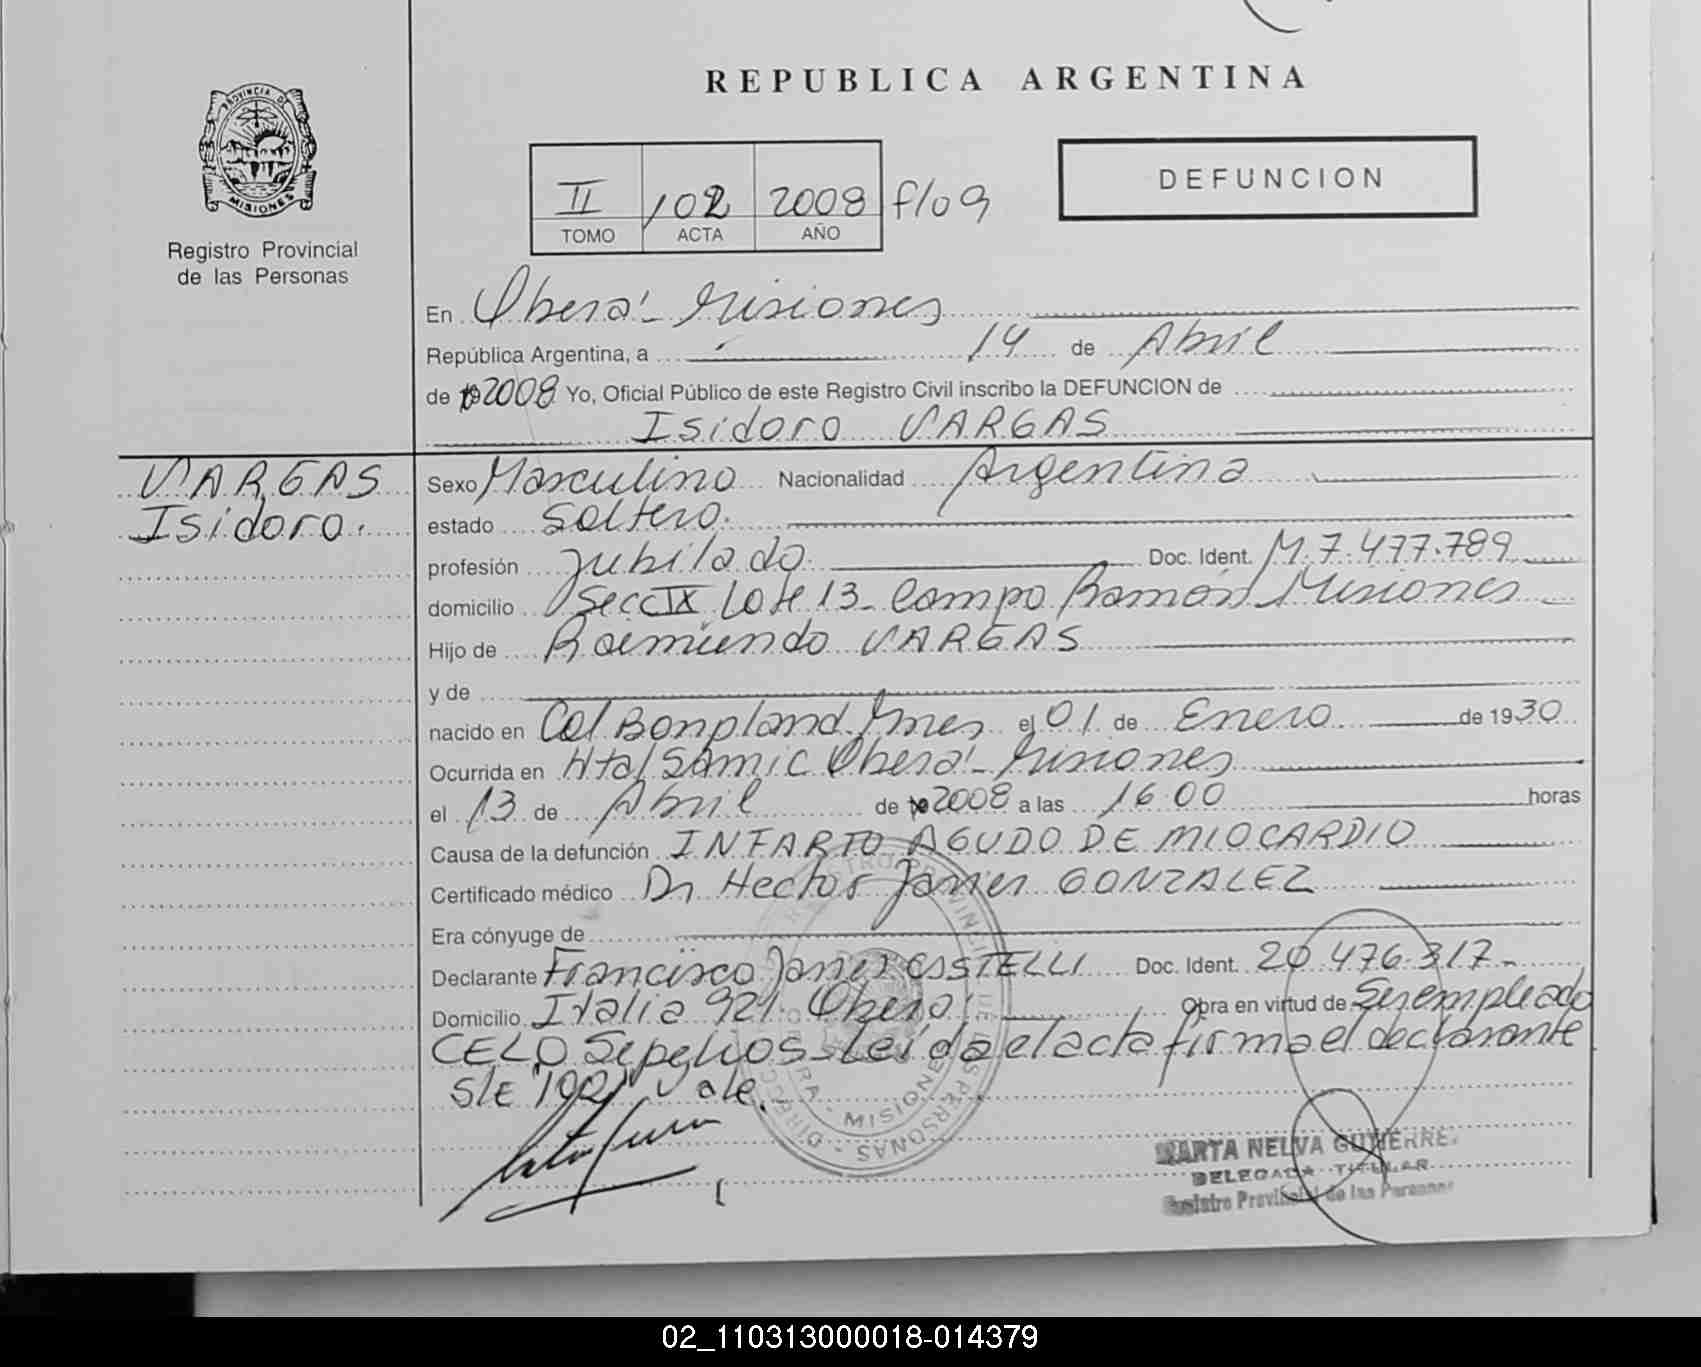 REPUBLICA ARGENTINA
PROVINCIA DE
MISIONES
Registro Provincial
de las Personas
II 102 2008 f/09
TOMO ACTA AÑO
DEFUNCION
En Oberá - Misiones
República Argentina, a 14 de Abril
de 2008 Yo, Oficial Público de este Registro Civil inscribo la DEFUNCION de
Isidoro VARGAS
VARGAS
Isidoro.
Sexo Masculino Nacionalidad Argentina
estado Soltero.
profesión Jubilado Doc. Ident. M.7.477.789
domicilio Secc IX Lote 13 - Campo Ramón Misiones
Hijo de Raimundo VARGAS
y de
nacido en Col Bonpland Mnes el 01 de Enero de 1930
Ocurrida en Htal Samic Oberá - Misiones
el 13 de Abril de 2008 a las 16.00 horas
Causa de la defunción INFARTO AGUDO DE MIOCARDIO
Certificado médico Dr Hector Javier GONZALEZ
Era cónyuge de
Declarante Francisco Javier CASTELLI Doc. Ident. 20.476.317-
Domicilio Italia 921 Oberá Obra en virtud de Ser empleado
CELO Sepelios - Leída el acta firma el declarante
S/E "102" Vale.
MARTA NELVA GUTIERREZ
DELEGADA TITULAR
Registro Provincial de las Personas
02_110313000018-014379